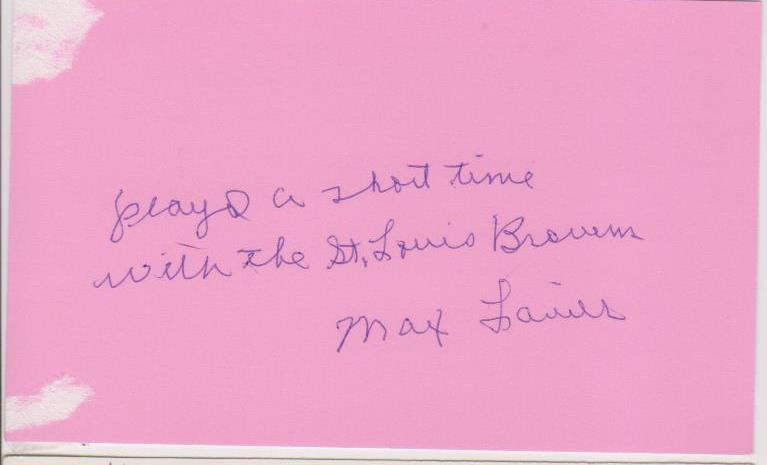 played a short time
with the St. Louis Browns
Max Lanier